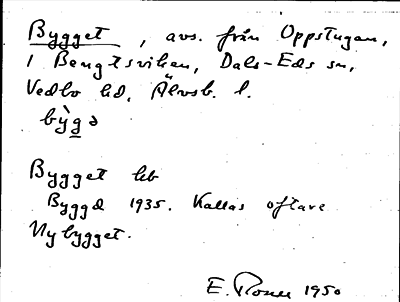 Bygget, avs. från Oppstugan,
1 Bengtsviken, Dals-Eds sn,
Vedbo hd, Älvsb. l.
by̆gə
Bygget lhb
Byggd 1935. Kallas oftare
Nybygget.
E. 1950